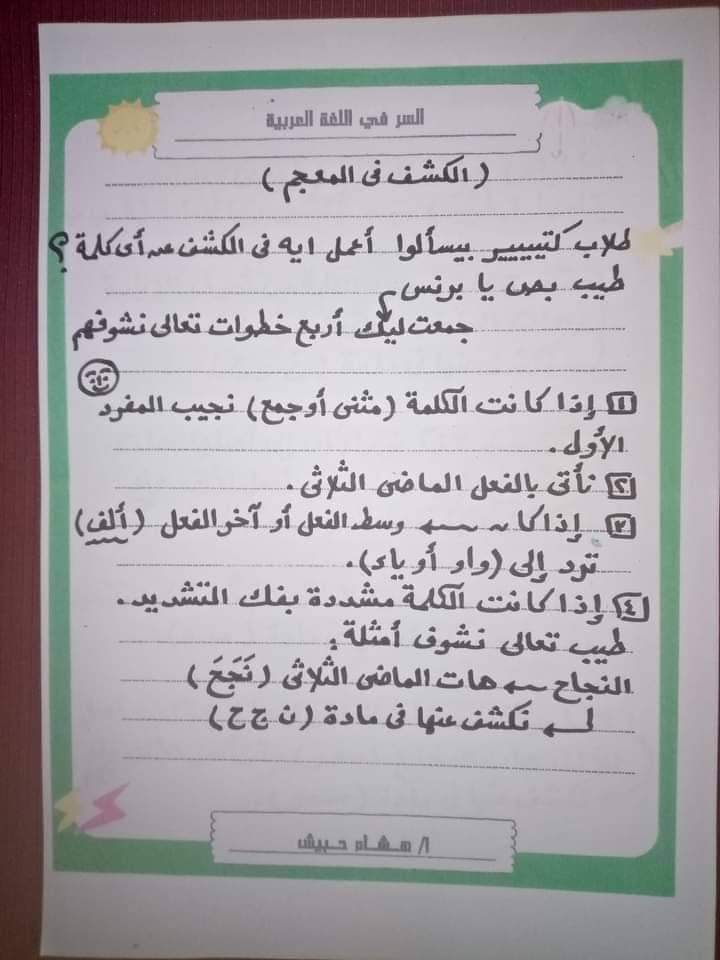 السر في اللغة العربية
(الكشف فى المعجم)
طلاب كتيييير بيسألوا أعمل ايه فى الكشف عن أى كلمة ؟
طيب بص يا برنس
جمعت ليك أربع خطوات تعالى نشوفهم
١ إذا كانت الكلمة (مثنى أو جمع) نجيب المفرد
الأول.
٢ نأتى بالفعل الماضى الثلاثى.
٣ إذا كان ← وسط الفعل أو آخر الفعل (ألف)
ترد إلى (واو أو ياء).
٤ إذا كانت الكلمة مشددة بفك التشديد.
طيب تعالى نشوف أمثلة:
النجاح ← هات الماضى الثلاثى (نَجَحَ)
ل← نكشف عنها فى مادة (ن ج ح)
أ/ هشام حبيش